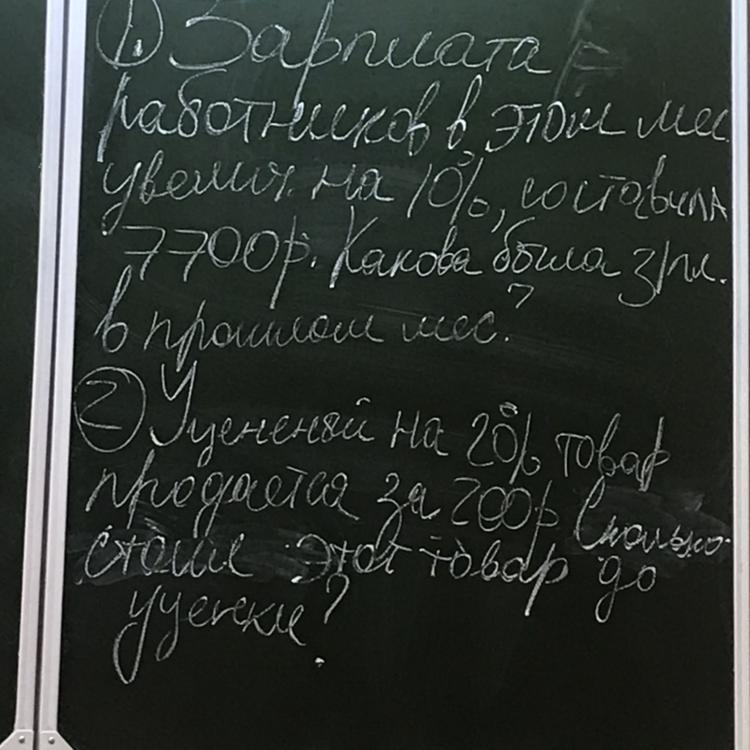 1. Зарплата
работников в этом мес.
увелич. на 10%, составила
7700р. Какова была з/пл.
в прошлом мес.?
2 Уцененый на 20% товар
продается за 200р Сколько
стоил этот товар до
уценки?